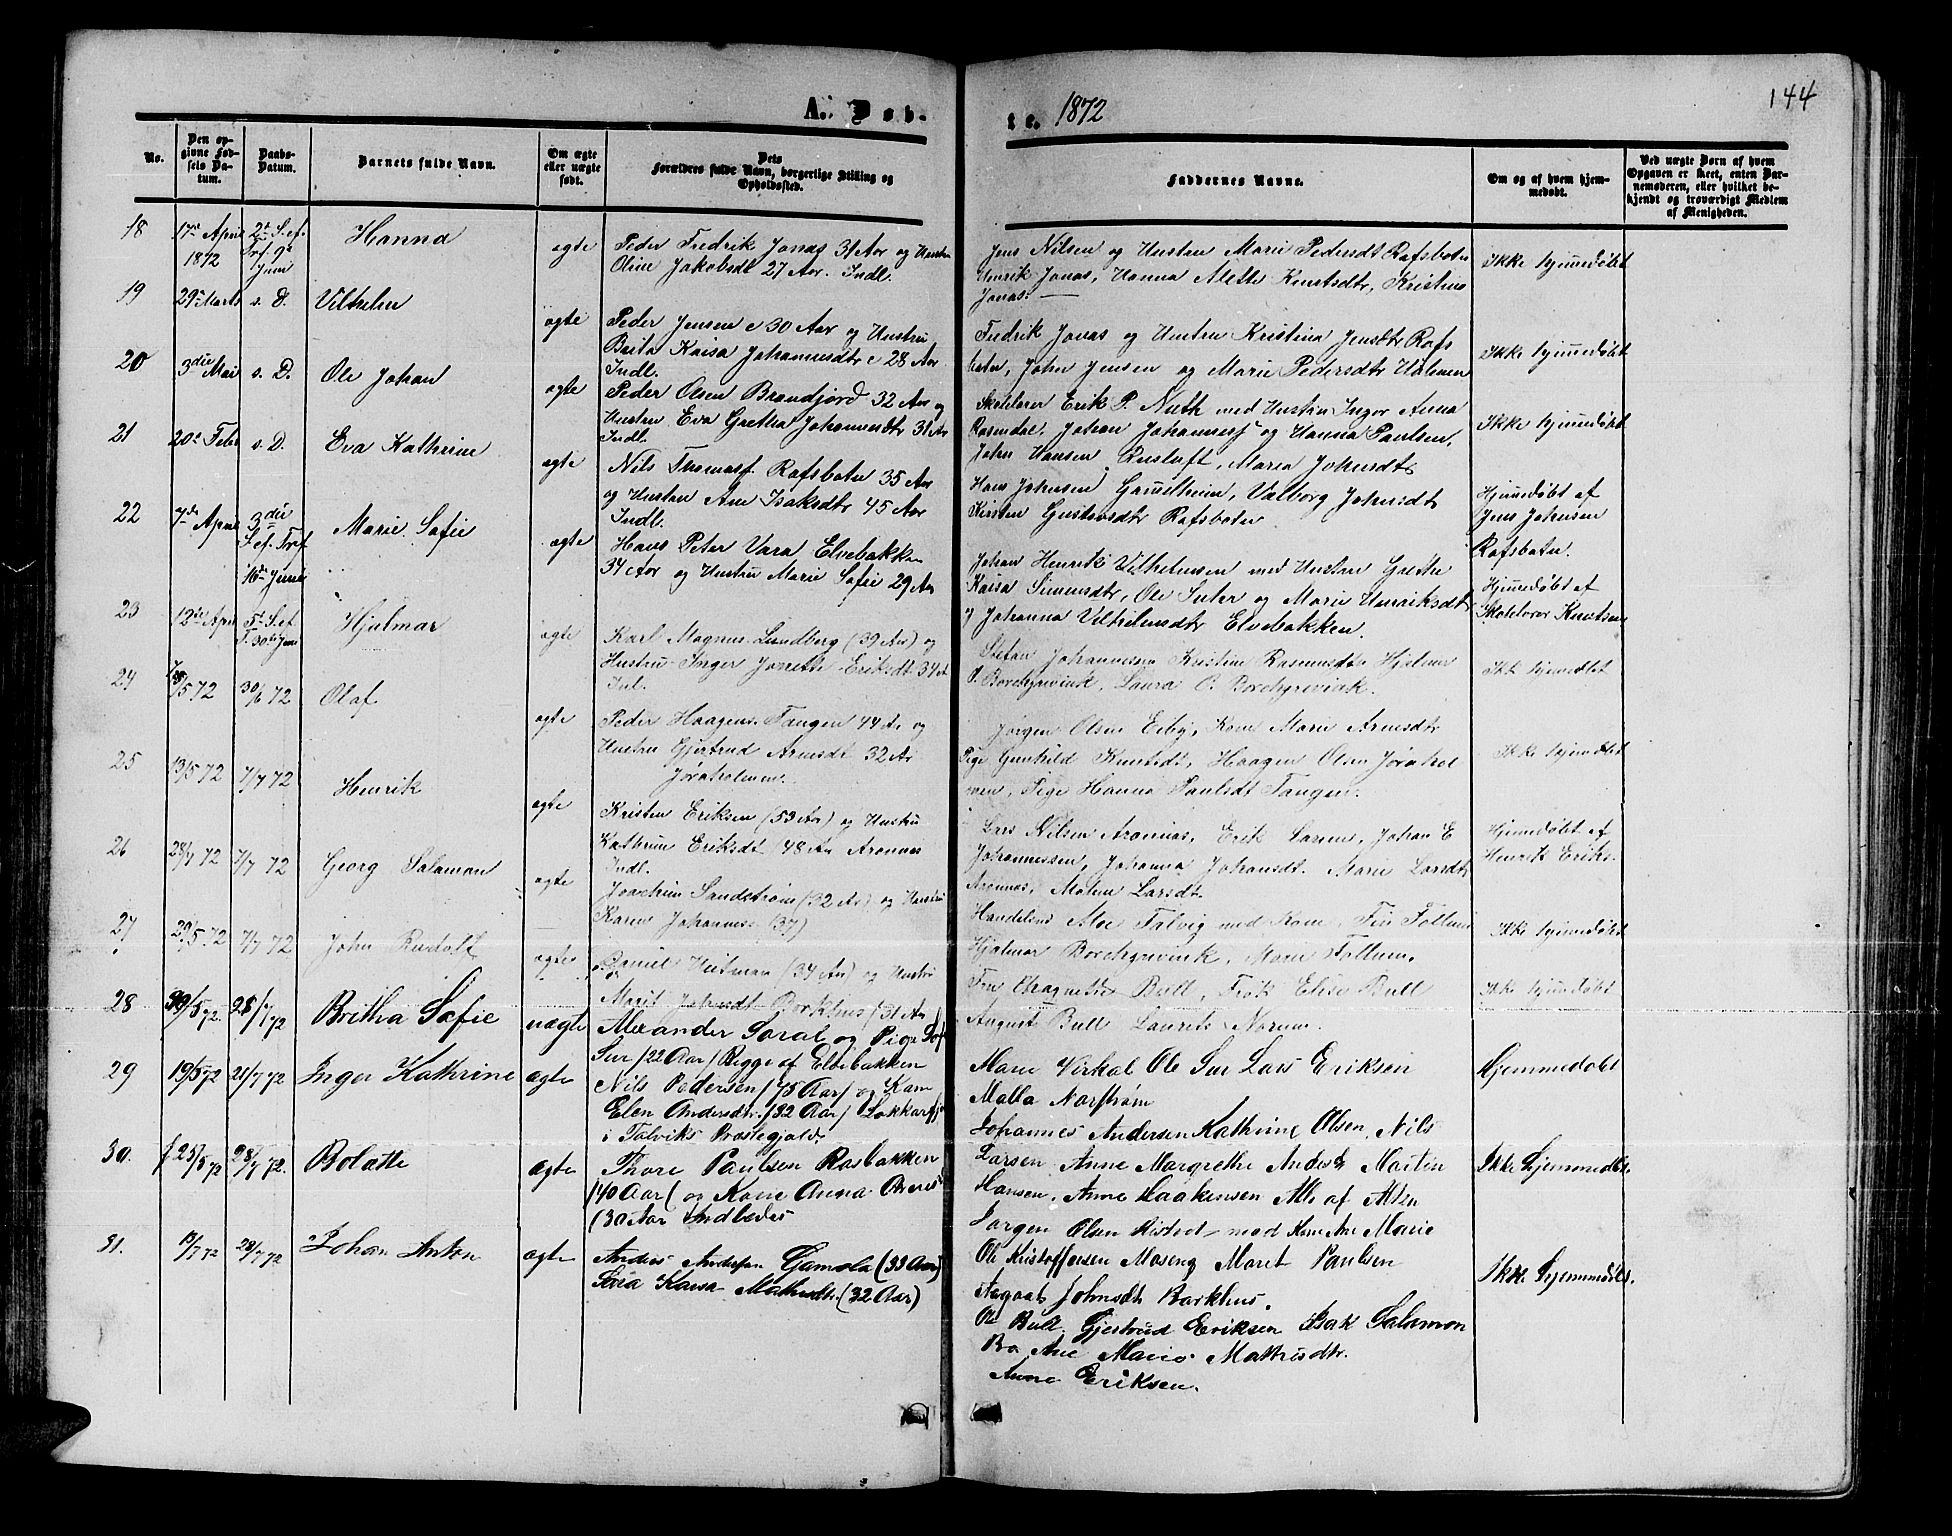 144
A. Døb-
te. 1872
No.
Den op-
givne Fød-
sels Da-
tum.
Daabs-
Datum.
Barnets fulde Navn.
Om ægte
eller uægte
født.
Dets
Forældres fulde Navn, borgerlige Stilling og
Opholdssted.
Faddernes Navne.
Om og af hvem hjem-
medøbt.
Ved uægte Børn af hvem
Opgaven er skeet, enten Bar-
nemoderen, eller hvilket be-
kjendt og troværdigt Medlem
af Menigheden.
18
17de April
1872
2d S. ef.
Trf. 9de
Juni
Hanna
ægte
Peder Fredrik Jonas 31 Aar og Hustru
Oline Jakobsdt 27 Aar. Indl.
Jens Nilsen og Hustru Marie Pedersdt Rafsbotn
Henrik Jonas, Hanna Mette Knutsdtr, Kristine
Jonas.
Ikke hjemmedøbt
19
29de Marts
s. D.
Vilhelm
ægte
Peder Jensen 30 Aar og Hustru
Brita Kaisa Johannesdtr 28 Aar
Indl.
Fredrik Jonas og Hustru Kristina Jensdtr Rafs
botn, John Jensen og Marie Pedersdtr Holmen
Ikke hjemmedøbt
20
3die Mai
s. D.
Ole Johan
ægte
Peder Olsen Brandfjord 32 Aar og
Hustru Eva Gretha Johannesdtr 31 Aar
Indl.
Skolelærer Erik P. Nuth med Hustru Inger Anna
Rosendal, Johan Johannesf og Hanna Paulsen,
Ikke hjemmedøbt
21
20de Febr
s. D.
Eva Kathrine
ægte
Nils Thomasf. Rafsbotn 35 Aar
og Hustru Ane Isaksdtr 45 Aar
Indl.
John Hansen Rusluft, Maria Johnsdtr
Hans Johnsen Gamelheim, Valborg Johnsdtr
Kirsten Gustavsdtr Rafsbotn
Hjemmedøbt af
Jens Johnsen
Rafsbotn.
22
7de April
3die
S. ef. Tref
16de Juni
Marie Sofie
ægte
Hans Peter Vara Elvebakken
34 Aar og Hustru Marie Sofie 29 Aar
Johan Henrik Vilhelmsen med Hustru Grethe
Kaisa Simonsdtr, Ole Suhr og Marie Henriksdtr
Johanna Vilhelmsdtr Elvebakken.
Hjemmedøbt af
Skolelærer Knutsen
23
12te April
5te S. ef
T. 30te Juni
Hjalmar
ægte
Karl Magnus Lundberg (39 Aar) og
Hustru Inger Jonette Eriksdt 34 A
Inl.
Stefan Johannesen Kristine Rasmusdtr Hjalmar
O. Borchgrevink, Laura O. Borchgrevink.
Ikke hjemdøbt
24
/5 72
30/6 72
Olaf
ægte
Peder Haagens. Tangen 44 Ar og
Hustru Gjertrud Arnesdt 32 Ar
Jøraholmen.
Jørgen Olsen Eiby, Kone Marie Arnesdtr
Pige Gunhild Knutsdt, Haagen Olsen Jørahol
men, Pige Hanna Paulsdt Tangen.
Ikke hjemdøbt
25
13/5 72
7/7 72
Henrik
ægte
Kristen Eriksen (53 Aar) og Hustru
Kathrine Eriksdt (48 Aar Aronnes
Indl.
Lars Nilsen Aronnes, Erik Larsen, Johan E
Johannessen, Johanna Johansdt. Marie Larsdtr
Aronnes, Malene Larsdt.
Hjemmedøbt af
Henrik Eriks.
26
7/7 72
Georg Salamon
ægte
Joachim Sandstrøm (32 Ar) og Hustru
Karen Johannesd (37)
Handelsm. Moe Talvig med Kone, Fru Follum
Hjalmar Borchgrevink, Marie Follum.
Ikke hjemmedøbt
27
29/5. 72
7/7 72
John Rudolf
ægte
Daniel Heitman (34 Aar) og Hustru
Marit Johnsdt Borkhus (31 Ar
Fru Bull, Frøk Elise Bull
August Bull Laurits Norum.
Ikke hjemmedøbt
28
30/5 72.
28/7 72
Britha Sofie
uægte
Alexander Soral og Pige Sof
Sur /22 Aar/ Begge af Elvebakken
Marie Virkal Ole Sur Lars Eriksen
Malla Norstrøm
Hjemmedøbt
29
19/5 72
21/7 72
Inger Kathrine
ægte
Nils Pedersen /75 Aar/ og Kone
Elen Andersdtr. /32 Aar/ Lokkarfj
i Talviks Præstegjeld.
Johannes Andersen Kathrine Olsen, Nils
Larsen, Anne Margrethe Andersdtr Martin
Hansen, Anne Haakensen Alle af Alten
30.
25/5 72
28/7 72.
Bolatte
ægte
Thore Paulsen Rasbakken
/40 Aar/ og Kone Anna Arnes
/30 Aar Indbedes
Jørgen Olsen Kistad med Kone Ane Marie
Ole Kristoffersen Moseng Maret Paulsen
Aagaat Johnsdt Barkhus.
Ikke hjemmedøbt
31.
13/7 72
28/7 72
Johan Anton
ægte
Anders Andersen Gamola (33 Aar)
Lisa Kaisa Mathisdtr. (32 Aar)
Ole Bull Gjertrud Eriksen Isak Salamon
Bra Ane Marie Mathisdtr.
Anne Eriksen.
Ikke hjemmedøbt.